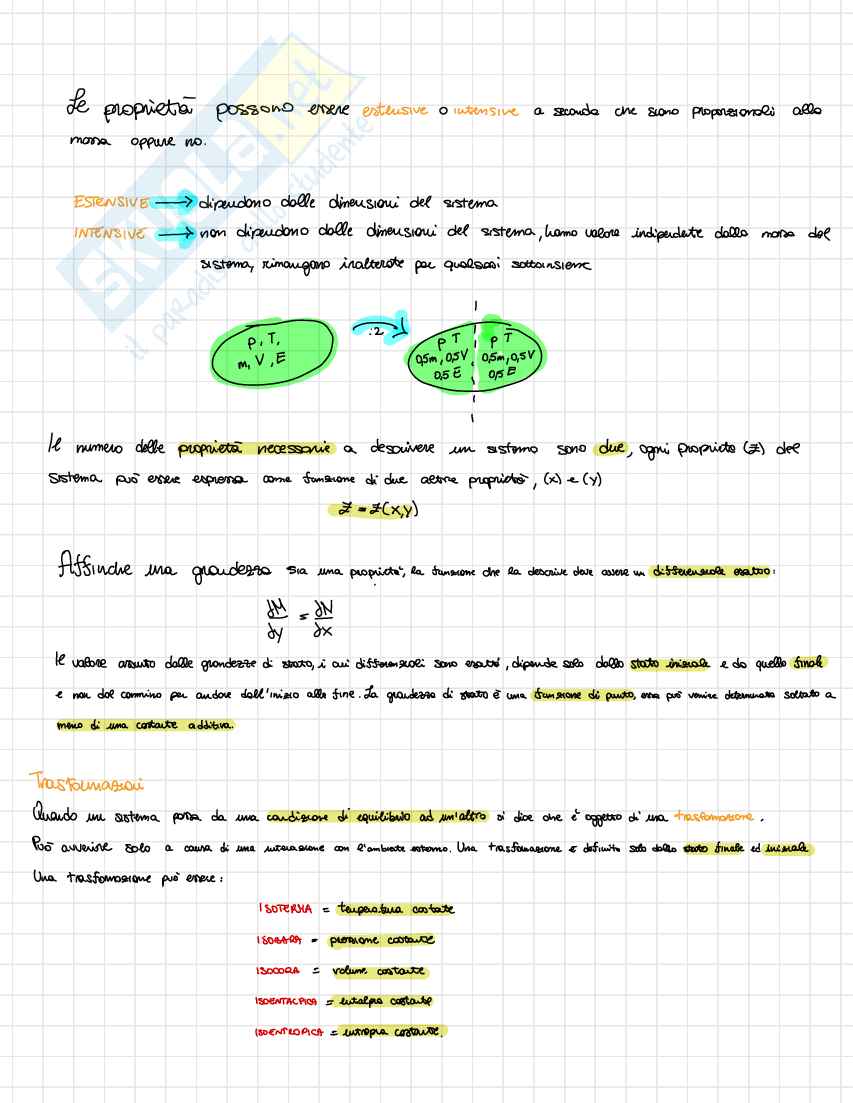 Le proprietà possono essere estensive o intensive a seconda che siano proporzionali alla
massa oppure no.
ESTENSIVE → dipendono dalle dimensioni del sistema
INTENSIVE → non dipendono dalle dimensioni del sistema, hanno valore indipendente dalla massa del
sistema, rimangono inalterate per qualsiasi sottoinsieme
p, T,
m, V, E
:2
p T
0,5m, 0,5V
0,5 E
p T
0,5m, 0,5V
0,5 E
Il numero delle proprietà necessarie a descrivere un sistema sono due, ogni proprietà (Z) del
sistema può essere espressa come funzione di due altre proprietà, (x) e (y)
Z = Z(x,y)
Affinché una grandezza sia una proprietà, la funzione che la descrive deve essere un differenziale esatto:
∂M/∂y = ∂N/∂x
Il valore assunto dalle grandezze di stato, i cui differenziali sono esatti, dipende solo dallo stato iniziale e da quello finale
e non dal cammino per andare dall'inizio alla fine. La grandezza di stato è una funzione di punto, essa può venire determinata soltanto a
meno di una costante additiva.
Trasformazioni
Quando un sistema passa da una condizione di equilibrio ad un'altra si dice che è oggetto di una trasformazione.
Può avvenire solo a causa di una interazione con l'ambiente esterno. Una trasformazione è definita solo dallo stato finale ed iniziale
Una trasformazione può essere:
ISOTERMA = temperatura costante
ISOBARA = pressione costante
ISOCORA = volume costante
ISOENTALPICA = entalpia costante
ISOENTROPICA = entropia costante.
SKUOLA.net
il paradiso dello studente